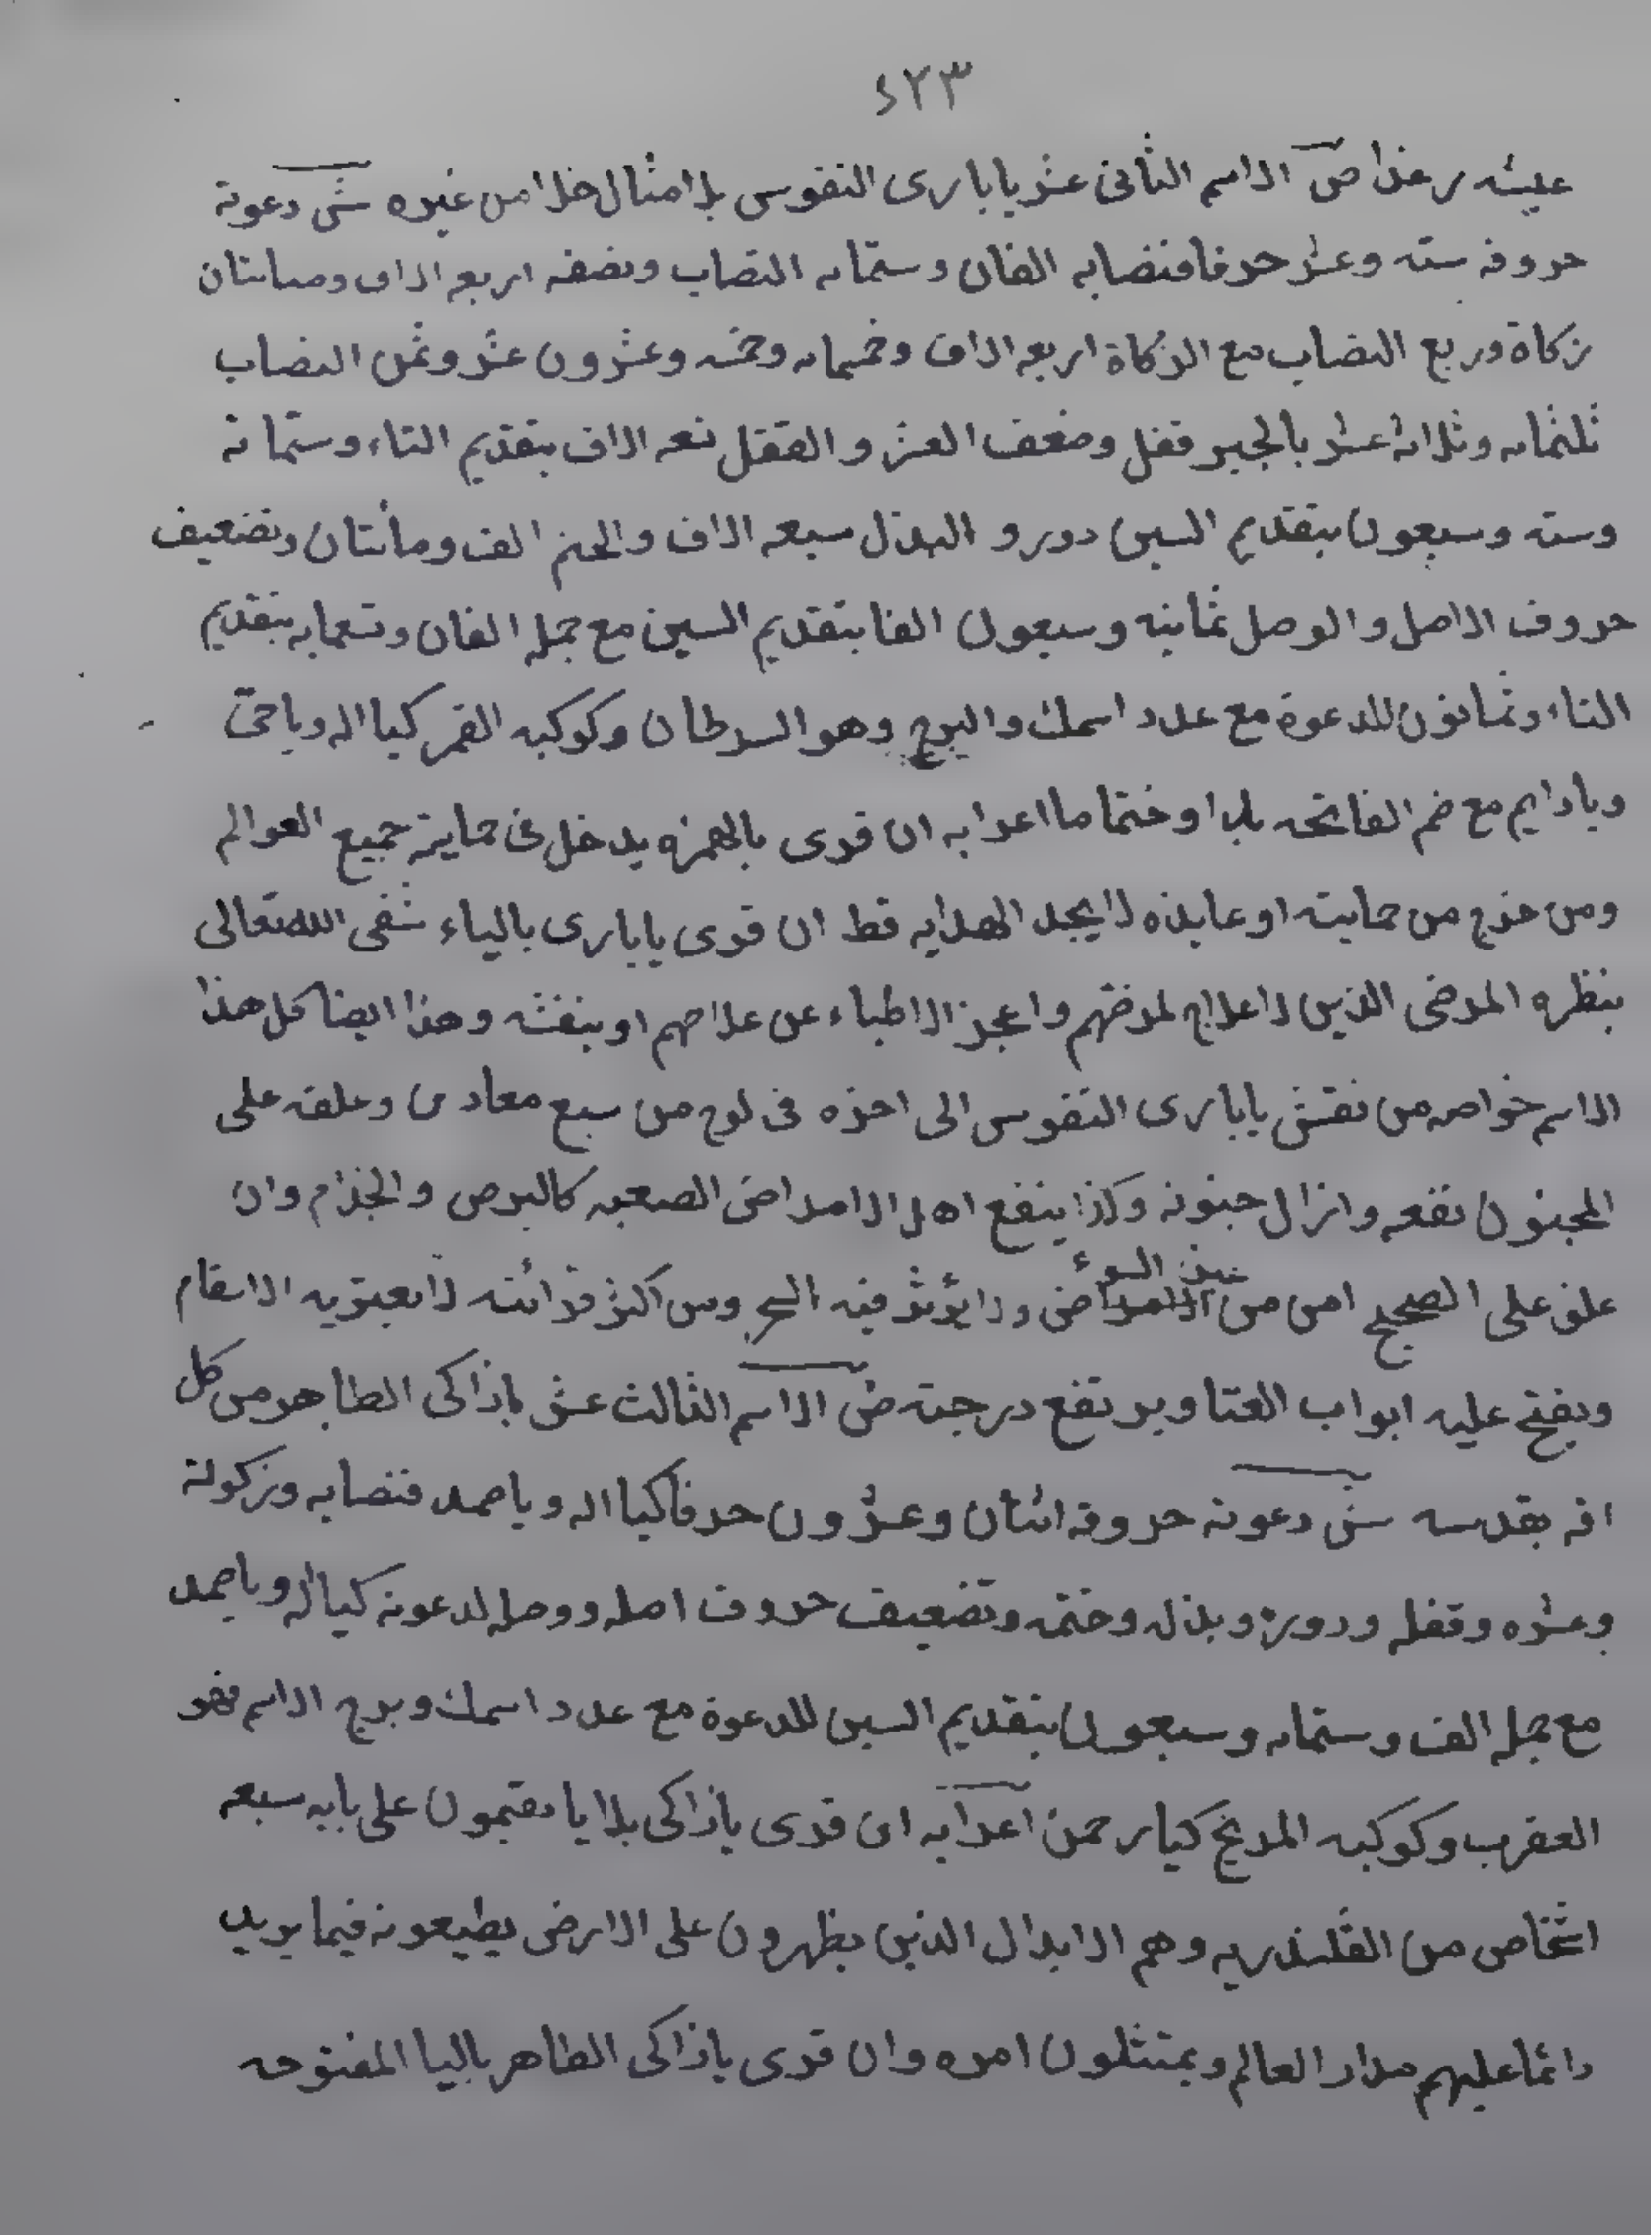 ٤٢٣
عيشه رغدا ص الاسم الثانى عشر يا بارى النفوس بلا مثال خلا من غيره ش دعوته
حروفه سته وعشر حرفا فنصابه الفان وستمايه النصاب ونصفه اربعه الاف ومايتان
زكاة وربع النصاب مع الزكاة اربعه الاف وخمسمايه وخمسه وعشرون عشر وثمن النصاب
ثلثمايه وثلاثة عشر بالجبر قفل وضعف العشر والقفل تسعه الاف بتقديم التاء وستماية
وسته وسبعون بتقديم السين دور و البذل سبعه الاف والختم الف ومائتان وتضعيف
حروف الاصل والوصل ثمانيه وسبعون الفا بتقديم السين مع جمله الفان وتسعمايه بتقديم
التاء وثمانون للدعوة مع عدد اسمك والبرج وهو السرطان وكوكبه القمر كيا اله ويا حى
ويا دايم مع ضم الفاتحه بدا وختما ما اعرابه ان قرى بالهمزه يدخل فى حماية جميع العوالم
ومن خرج من حمايته او عانده لا يجد الهدايه قط ان قرى يا بارى بالياء شفى الله تعالى
بنظره المرضى الذين لا علاج لمرضهم واعجز الاطباء عن علاجهم او بنفثه وهذا ايضا كل هذا
الاسم خواصه من نقش يا بارى النفوس الى اخره فى لوح من سبع معادن وعلقه على
المجنون نفعه وازال جنونه وكذا ينفع اهل الامراض الصعبه كالبرص والجذام وان
علق على الصحيح امن من الامراض ولا يؤثر فيه السحر ومن اكثر قرائته لا تعتريه الاسقام
ويفتح عليه ابواب الغنا ويرتفع درجته ص الاسم الثالث عشر يا زاكى الطاهر من كل
افه بقدسه ش دعوته حروفه اثنان وعشرون حرفا كيا اله ويا صمد فنصابه وزكوته
وعشره وقفله ودوره وبذله وختمه وتضعيف حروف اصله ووصله لدعوته كيا اله ويا صمد
مع جمله الف وستمايه وسبعون بتقديم السين للدعوة مع عدد اسمك وبرج الاسم فهو
العقرب وكوكبه المريخ كيا رحمن اعرابه ان قرى يا زاكى بلا يا يقيمون على بابه سبعه
اشخاص من القلندريه وهم الابدال الذين يظهرون على الارض يطيعونه فيما يريد
دائما عليهم مدار العالم ويمتثلون امره وان قرى يا زاكى الطاهر باليا المفتوحه